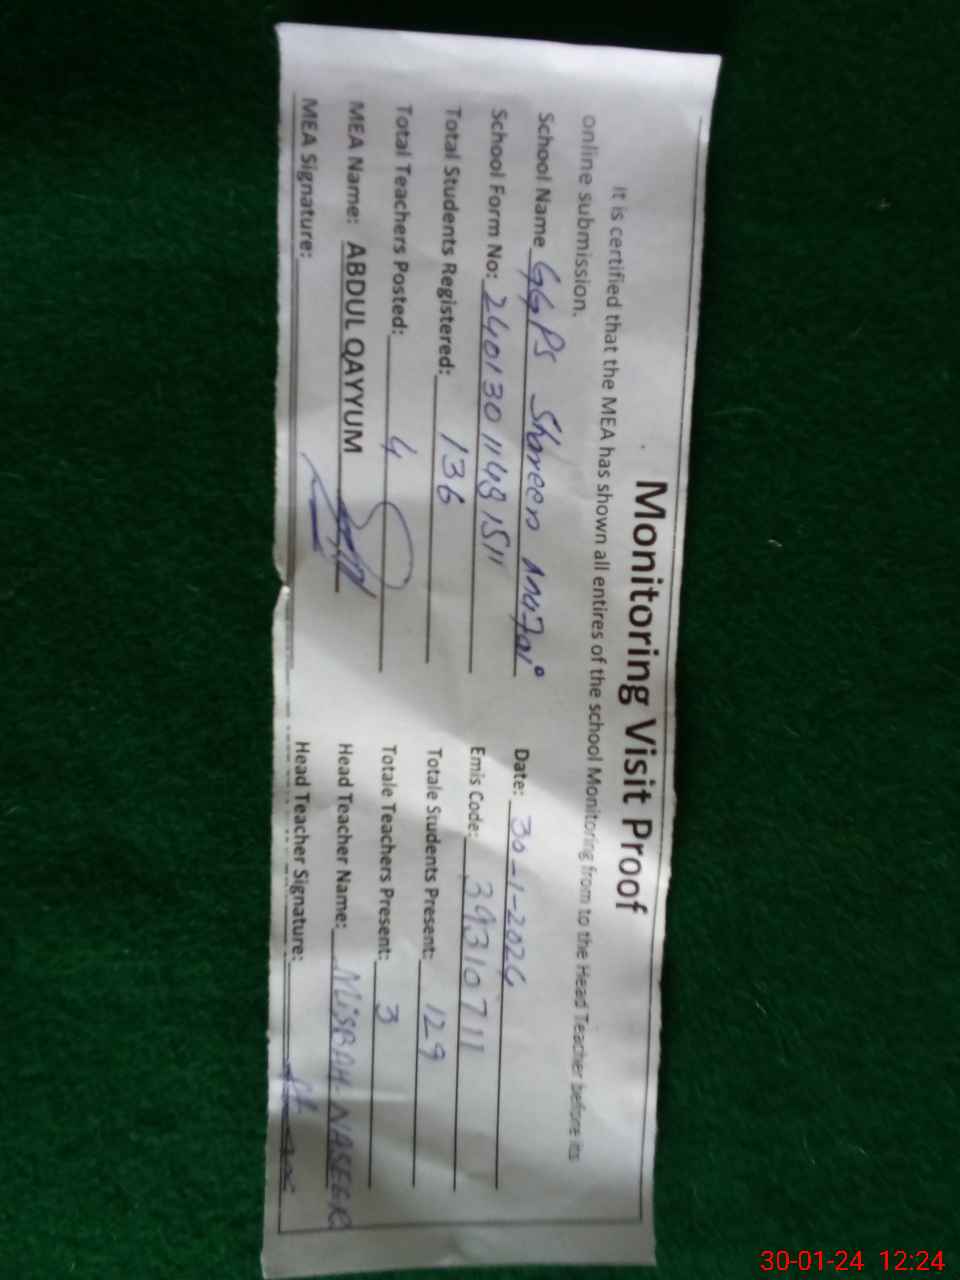 Monitoring Visit Proof
It is certified that the MEA has shown all entires of the school Monitoring from to the Head Teacher before its
online submission.
School Name GGPS Shareen Date: 30-1-2024
School Form No: Emis Code: 39310711
Total Students Registered: 136 Totale Students Present: 129
Total Teachers Posted: 4 Totale Teachers Present: 3
MEA Name: ABDUL QAYYUM Head Teacher Name: MISBAH NASEER
MEA Signature: Head Teacher Signature:
30-01-24 12:24